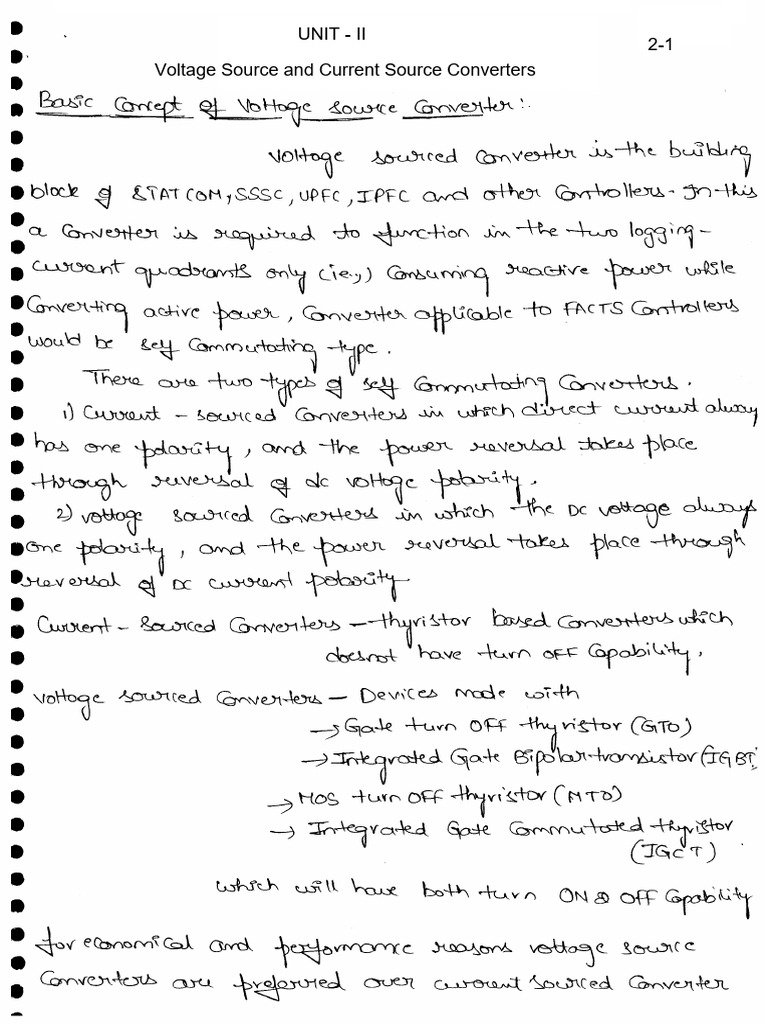 UNIT - II
2-1
Voltage Source and Current Source Converters
Basic Concept of Voltage source Converter:.
Voltage sourced Converter is the building
block of STATCOM, SSSC, UPFC, IPFC and other Controllers. In this
a Converter is required to function in the two lagging-
current quadrants only (ie.,) Consuming reactive power while
Converting active power, Converter applicable to FACTS Controllers
would be self Commutating type.
There are two types of self Commutating Converters.
1) Current - sourced Converters in which direct current alway
has one polarity, and the power reversal takes place
through reversal of dc voltage polarity.
2) voltage sourced Converters in which the DC voltage always
one polarity, and the power reversal takes place through
reversal of DC current polarity
Current - Sourced Converters - thyristor based Converters which
doesnot have turn OFF Capability.
voltage sourced Converters - Devices made with
→ Gate turn OFF thyristor (GTO)
→ Integrated Gate Bipolar transistor (IGBT)
→ MOS turn OFF thyristor (MTO)
→ Integrated Gate Commutated thyristor
(IGCT)
which will have both turn ON & OFF Capability
for economical and performance reasons voltage source
Converters are preferred over current sourced Converter